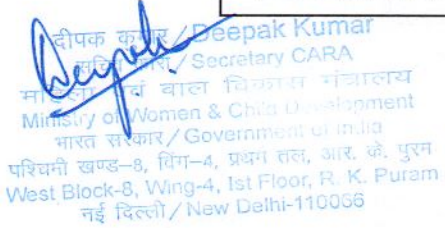 दीपक कुमार / Deepak Kumar
सचिव कारा / Secretary CARA
महिला एवं बाल विकास मंत्रालय
Ministry of Women & Child Development
भारत सरकार / Government of India
पश्चिमी खण्ड–8, विंग–4, प्रथम तल, आर. के. पुरम
West Block-8, Wing-4, Ist Floor, R. K. Puram
नई दिल्ली / New Delhi-110066